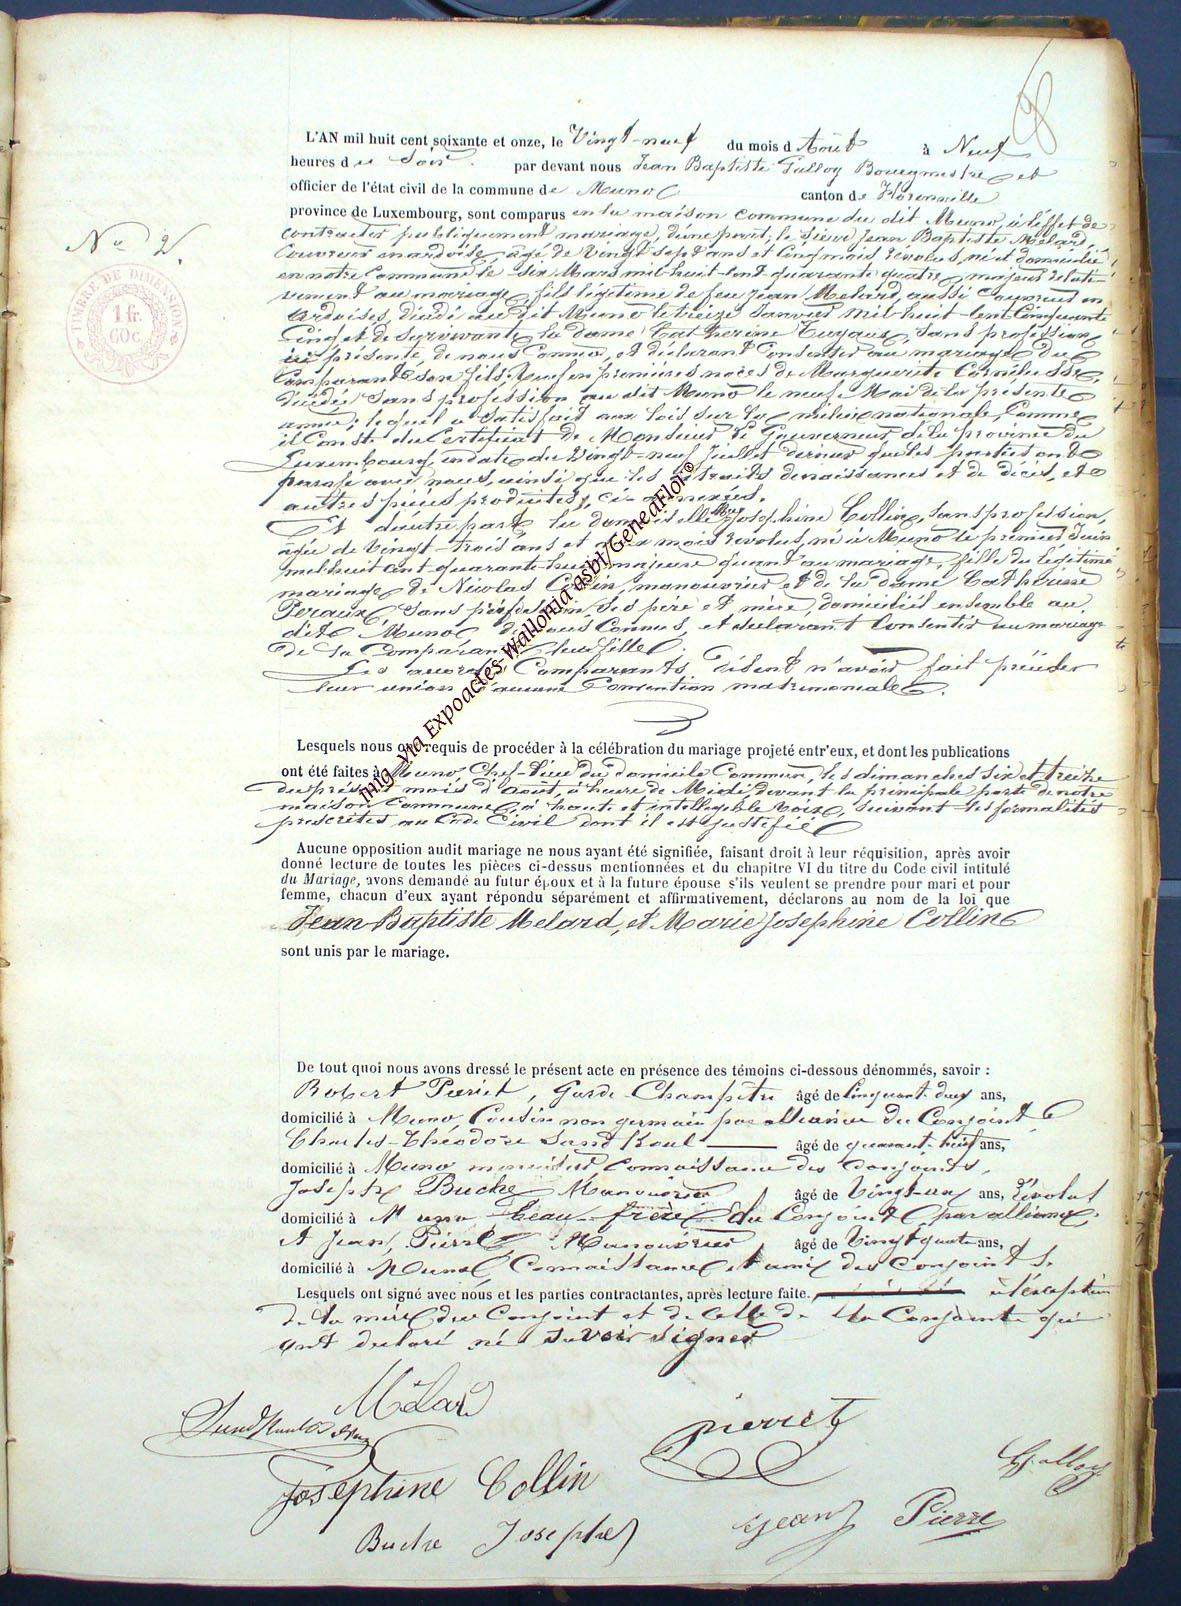 8
L'AN mil huit cent soixante et onze, le Vingt-neuf du mois d'Août à Neuf
heures du Soir par devant nous Jean Baptiste Galloy Bourgmestre et
officier de l'état civil de la commune de Muno canton de Florenville
province de Luxembourg, sont comparus en la maison commune du dit Muno, à l'effet de
contracter publiquement mariage, d'une part, le sieur Jean Baptiste Melard,
Couvreur en ardoise, âgé de Vingt sept ans et Cinq mois révolus, né et domicilié
en notre Commune le six Mars mil-huit-cent quarante quatre, majeur relati-
vement au mariage, fils légitime de feu Jean Melard, aussi Couvreur en
Ardoises, décédé au dit Muno le treize Janvier mil-huit-cent Cinquante
Cinq et de survivante la dame Catherine Tuyaux, sans profession
ici présente, de nous Connue, et déclarant Consentir au mariage du
Comparant son fils, Veuf en premières noces de Marguerite
décédée Sans profession au dit Muno le neuf Mai de la présente
année; lequel a satisfait aux lois sur la milice nationale Comme
il Conste du Certificat de Monsieur le Gouverneur de la Province du
Luxembourg en date du Vingt-neuf Juillet dernier que les parties ont
parafé avec nous, ainsi que les extraits de naissances et de décès, et
autres pièces produites, ci-annexées.
Et d'autre part la demoiselle Mie Josephine Collin, Sans profession,
âgée de Vingt-trois ans et deux mois révolus, né à Muno le premier Juin
mil huit cent quarante-huit majeure quant au mariage, fille du légitime
mariage de Nicolas Collin, manouvrier et de la dame Catherine
Peraux, Sans profession, Ses père et mère, domiciliés ensemble au
dit Muno de nous Connus, et déclarant Consentir au mariage
de la Comparante leur fille.
Les Comparants disent n'avoir fait précéder
leur union d'aucune Convention matrimoniale.
Lesquels nous ont requis de procéder à la célébration du mariage projeté entr'eux, et dont les publications
ont été faites à Muno, Chef-lieu du domicile Commun, les dimanches six et treize
du présent mois d'Août, à heure de Midi, devant la principale porte de notre
maison Commune, à haute et intelligible Voix, suivant les formalités
prescrites au Code Civil dont il est justifié
Aucune opposition audit mariage ne nous ayant été signifiée, faisant droit à leur réquisition, après avoir
donné lecture de toutes les pièces ci-dessus mentionnées et du chapitre VI du titre du Code civil intitulé
du Mariage, avons demandé au futur époux et à la future épouse s'ils veulent se prendre pour mari et pour
femme, chacun d'eux ayant répondu séparément et affirmativement, déclarons au nom de la loi que
Jean Baptiste Melard, et Marie Josephine Collin
sont unis par le mariage.
De tout quoi nous avons dressé le présent acte en présence des témoins ci-dessous dénommés, savoir :
Robert Pierret, Garde-Champêtre âgé de Cinquant-deux ans,
domicilié à Muno, Cousin non germain par alliance du Conjoint
Charles-Théodore Sandkoul âgé de quarant-huit ans,
domicilié à Muno menuisier, Connaissance des Conjoints,
Joseph Buche Manouvrier âgé de Vingt-un ans, révolus
domicilié à Muno beau-frère du Conjoint par alliance,
et Jean, Pierre Manouvrier âgé de Vingt quatre ans,
domicilié à Muno, Connaissance et ami des Conjoints.
Lesquels ont signé avec nous et les parties contractantes, après lecture faite, à l'exception
de la mère du Conjoint et de celle de la Conjointe qui
ont déclaré ne savoir signer
Mélard
pierret
Galloy
Joséphine Collin
Jean Pierre
Buche Joseph
No 2.
TIMBRE DE DIMENSION
1 fr.
60c.
img. via Expoactes-Wallonia asbl/GeneaFlor©